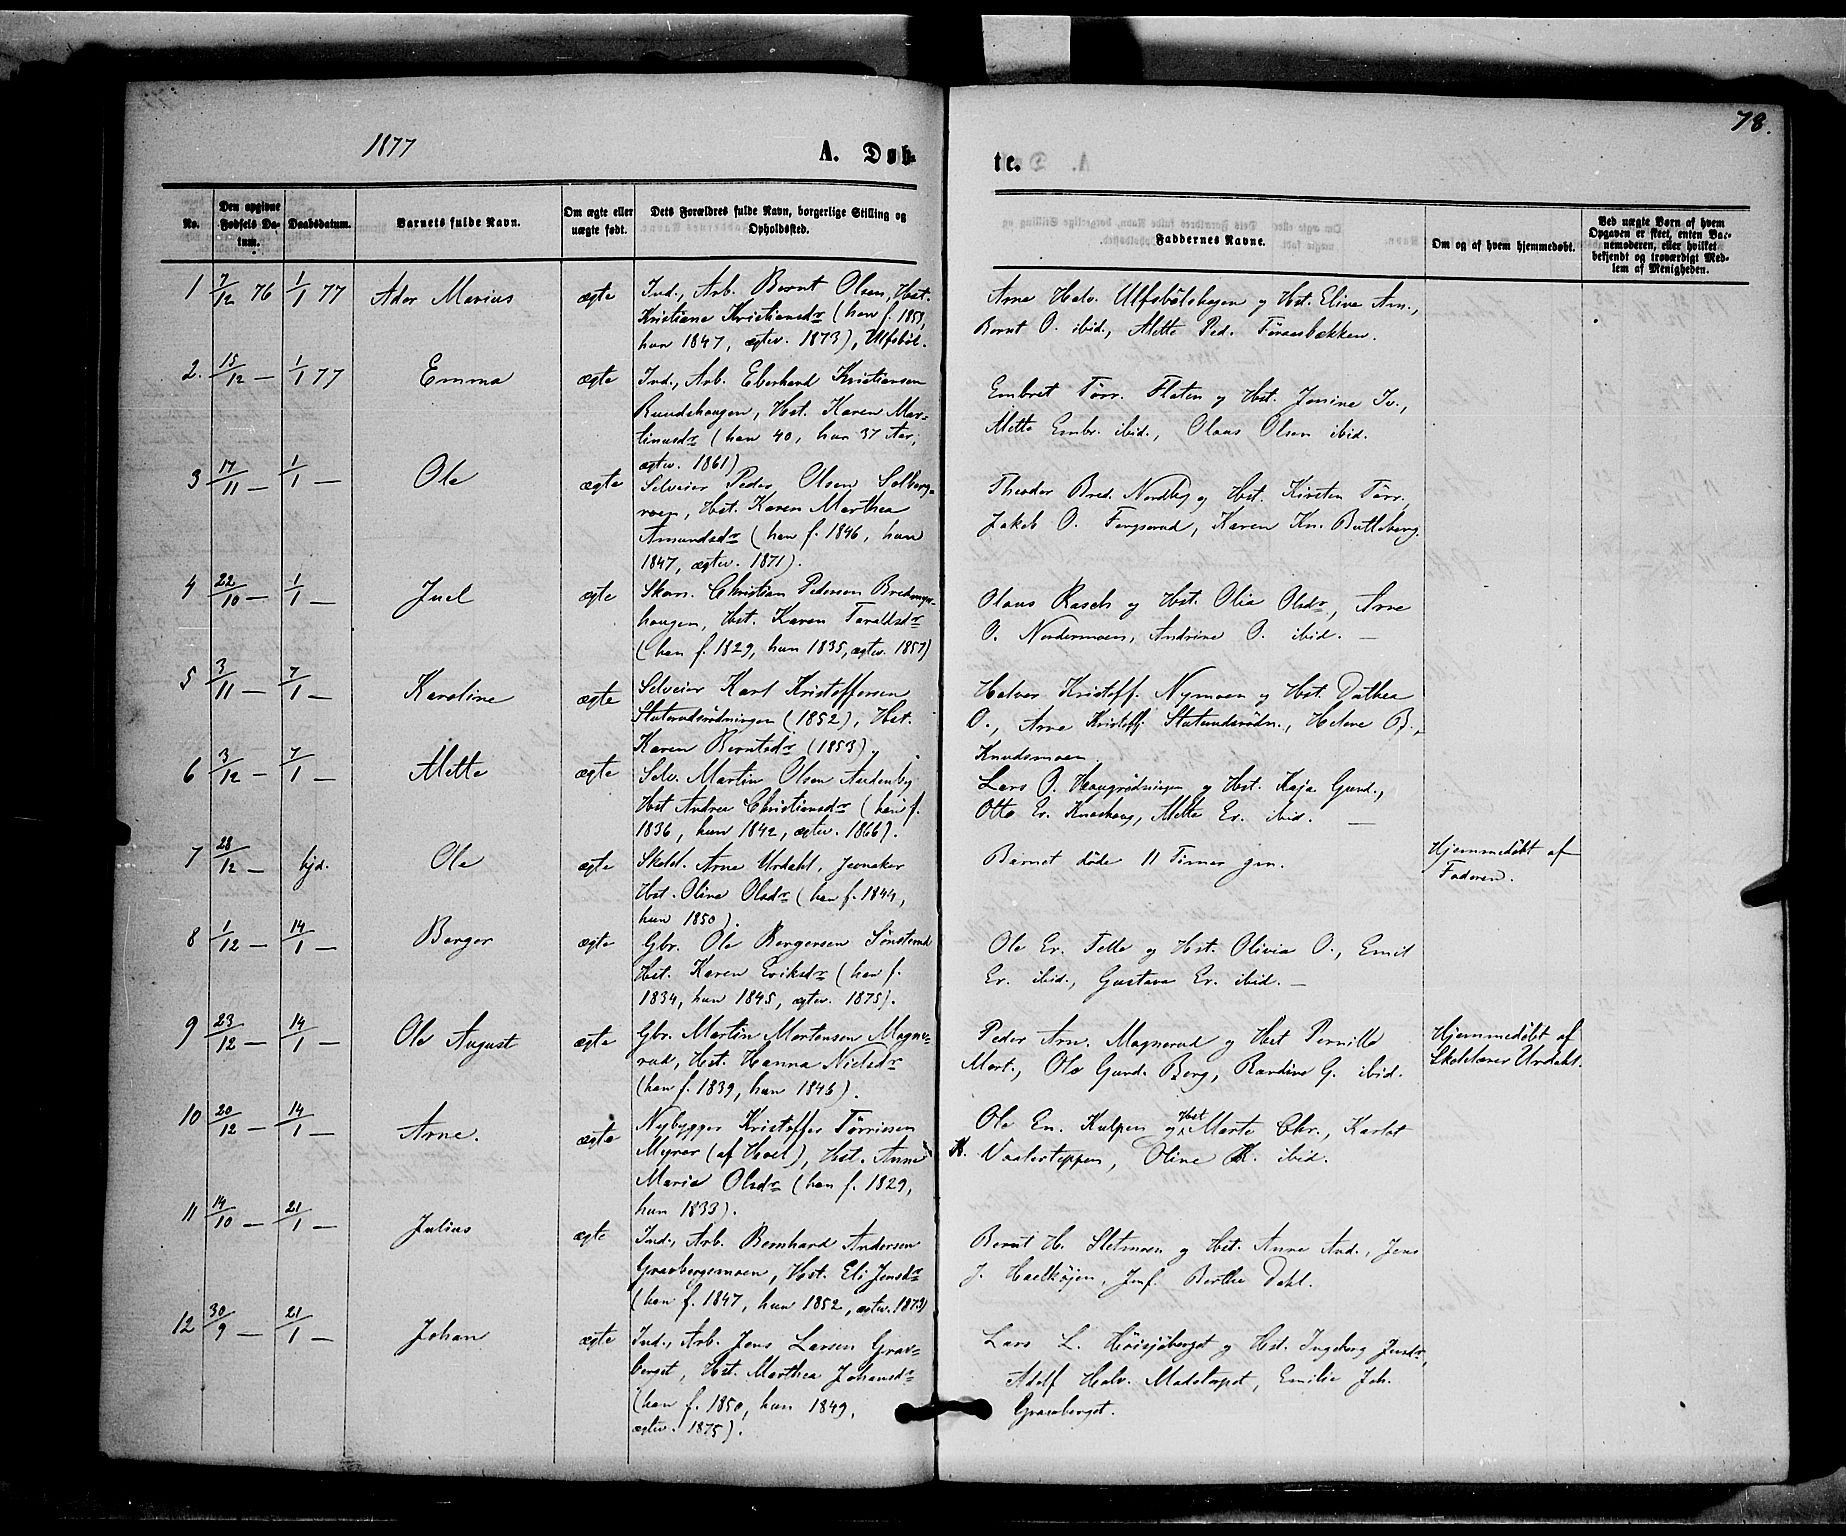 1877
78.
A. Døb-
te.
No.
Den opgivne Fødsels Da-
tum.
Daabsdatum.
Barnets fulde Navn.
Om ægte eller
uægte født.
Dets Forældres fulde Navn, borgerlige Stilling og
Opholdssted.
Faddernes Navne.
Om og af hvem hjemmedøbt.
Ved uægte Børn af hvem
Opgaven er skeet, enten Bar-
nemoderen, eller hvilket
bekjendt og troværdigt Med-
lem af Menigheden.
1 7/12 76 1/1 77 Ador Marius ægte Ind., Arb. Bernt Olsen, Hst.
Kristiane Kristiansdr (han f. 1853,
hun 1847, ægtev. 1873), Ulfsböl.
Arne Halv. Ulfsbölshagen og Hst. Eline Arn.,
Bernt O. ibid., Mette Ped. Föraasbækken.
2. 15/12 — 1/1 77 Emma ægte Ind., Arb. Eberhard Kristiansen
Rundshaugen, Hst. Karen Mar-
tinusdr (han 40, hun 37 Aar,
ægtev. 1861)
Embret Törr. Flaten og Hst. Jonine Iv.,
Mette Embr. ibid., Olaus Olsen ibid.
3 17/11 — 1/1 — Ole ægte Selveier Peder Olsen Solberg-
roen, Hst. Karen Marthea
Amundsdr (han f. 1846, hun
1847, ægtev. 1871).
Theodor Bred. Nordby og Hst. Kirsten Törr.
Jakob O. Fergserud, Karen Kn. Butteberg.
4 22/10 — 1/1 — Juel ægte Skom. Christian Pedersen
haugen, Hst. Karen Taraldsdr
(han f. 1829, hun 1835, ægtev. 1857)
Olaus Rasch og Hst. Olia Olsdr, Arne
O. Nordermoen, Andrine O. ibid. —
5 3/11 — 7/1 — Karoline ægte Selveier Karl Kristoffersen
Staterudsrödningen (1852), Hst.
Karen Berntsdr (1853)
Halvor Kristoff. Nymoen og Hst. Dathea
O., Arne Kristoff. Staterudsrödn., Helene B.,
Knudsmoen
6 3/12 — 7/1 — Mette ægte Selv. Martin Olsen Audenby
Hst Andrea Christiansdr (han f.
1836, hun 1842, ægtev. 1866).
Lars O. Haugrödningen og Hst. Kaja Gund.,
Otto Er. Knashaug, Mette Er. ibid. —
7 28/12 — hjd. Ole ægte Skolel. Arne Urdahl, Jevnaker
Hst. Oline Olsdr (han f. 1844,
hun 1850).
Barnet døde 11 Timer gm.
Hjemmedøbt af
Faderen.
8 1/12 — 14/1 — Borger ægte Gbr. Ole Borgersen Sönsterud
Hst. Karen Eriksdr (han f.
1834, hun 1845, ægtev. 1875).
Ole Er. Felle og Hst. Olivia O., Emil
Er. ibid., Gustava Er. ibid. —
9 23/12 — 14/1 — Ole August ægte Gbr. Martin Mortensen Magne-
rud, Hst. Hanna Nielsdr
(han f. 1839, hun 1846).
Peder Arn. Magnerud og Hst Pernille
Mort., Ole Gund. Berg, Randine G. ibid.
Hjemmedøbt af
Skolelærer Urdahl.
10 20/12 — 14/1 — Arne. ægte Nybygger Kristoffer Törrisen
Myrer (af Hoel), Hst. Anne
Marie Olsdr (han f. 1829,
hun 1833).
Ole En. Kulpen og Hst Marte Chr., Karlot
K. Vaalerteppen, Oline K. ibid.
11 14/10 — 21/1 — Julius ægte Ind., Arb. Bernhard Andersen
Gravbergsmoen, Hst. Eli Jensdr
(han f. 1847, hun 1852, ægtev. 1873)
Bernt H. Sletmoen og Hst. Anne And., Jens
J. Haelköjen, Jmf. Berthe Dahl.
12 30/9 — 21/1 — Johan ægte Ind., Arb. Jens Larsen Grav-
berget, Hst. Marthea Johansdr
(han f. 1850, hun 1849,
ægtev. 1875).
Lars L. Höisjöberget og Hst. Ingeborg Jensdr,
Adolf Halv. Madstopet, Emilie Joh.
Gravberget.